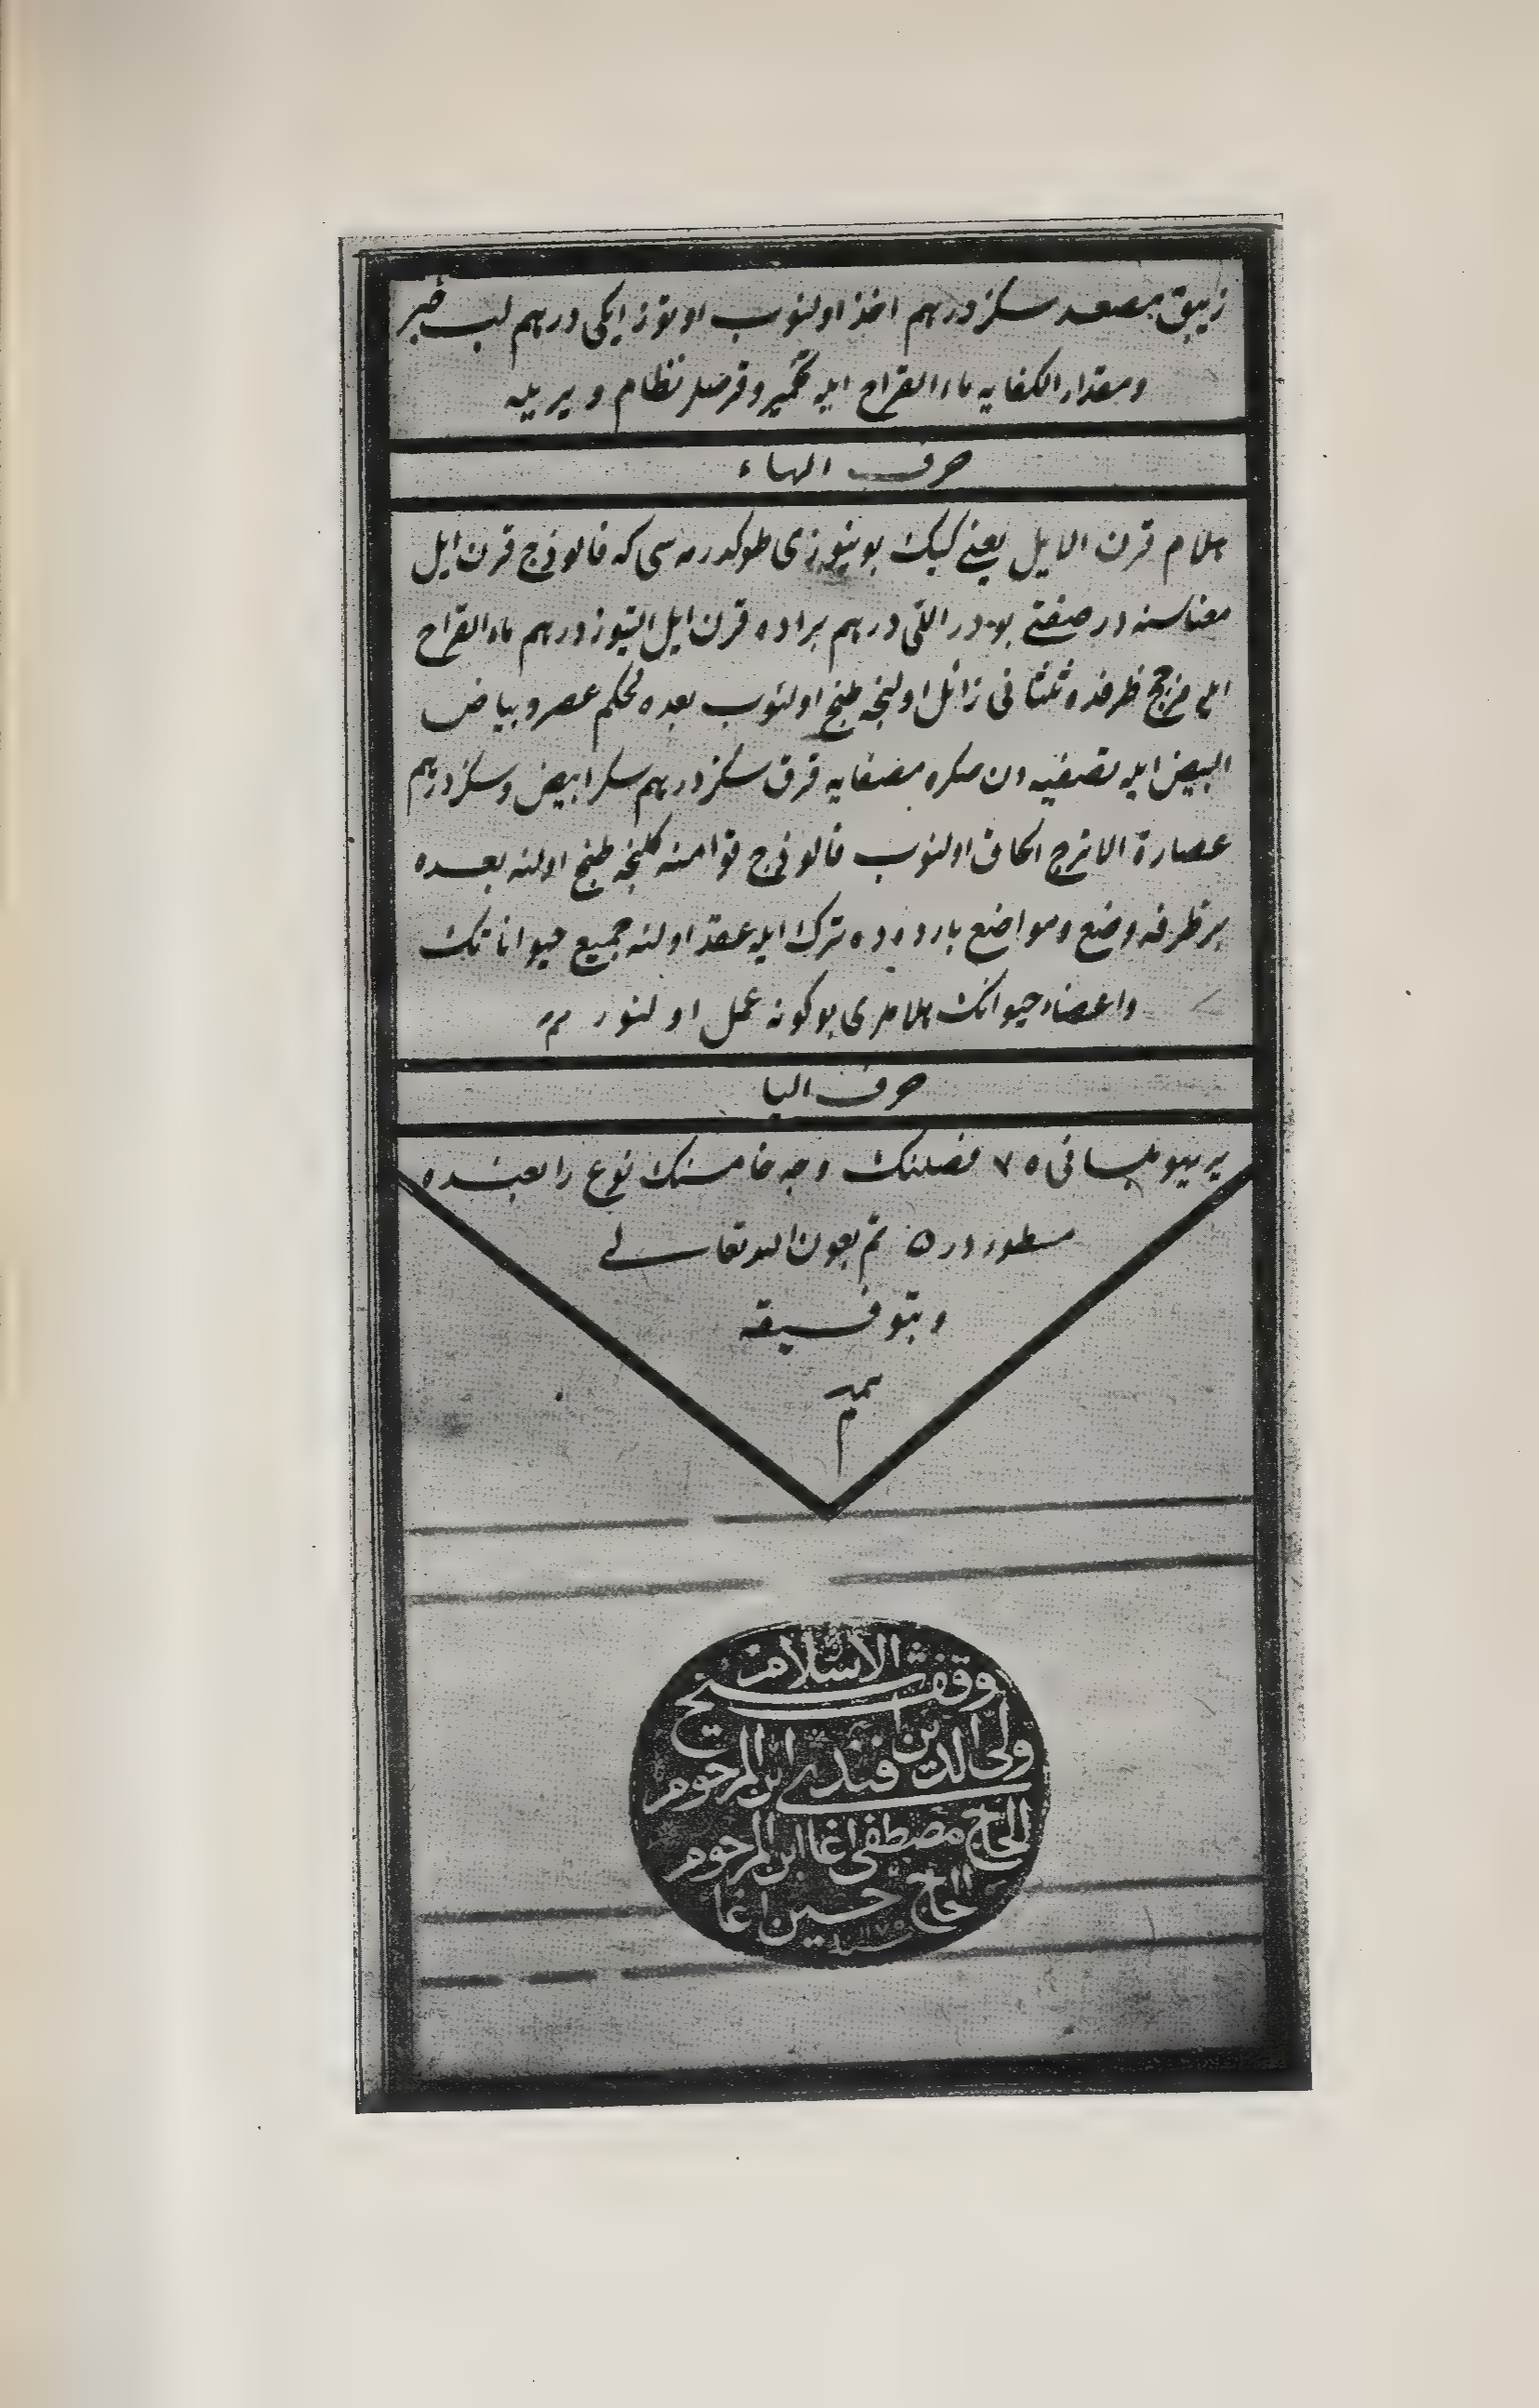 زیبق مصعد سکز درهم اخذ اولنوب اوتوز ایکی درهم لب خبز
ومقدار الکفایه ماء القراح ایله تخمیر وقرصلر نظام ویریله
حرف الهاء
هلام قرن الایل یعنی کیک بوینوزی طوکدرمه سی که فالوذج قرن ایل
معناسنه در صفتی بودر اللی درهم براده قرن ایل اتیوز درهم ماء القراح
ایله مزجج ظرفده ثلثانی زائل اولنجه طبخ اولنوب بعده محکم عصر وبیاض
البیض ایله تصفیه دن صکره مصفایه قرق سکز درهم سکر ابیض وسکز درهم
عصارة الاترج الحاق اولنوب فالوذج قوامنه کلنجه طبخ اولنه بعده
بر ظرفه وضع ومواضع بارده ده ترک ایله عقد اولنه جمیع حیواناتک
واعضاء حیوانک هلاملری بوکونه عمل اولنور
حرف الیا
۷۵ فصلنک وجه خامسنک نوع رابعنده
مسطوردر تم بعون الله تعالی
وبتوفیقه
وقف شیخ الاسلام
ولی الدین افندی ابن المرحوم
الحاج مصطفی اغا ابن المرحوم
الحاج حسین اغا
سنه ۱۱۷۵